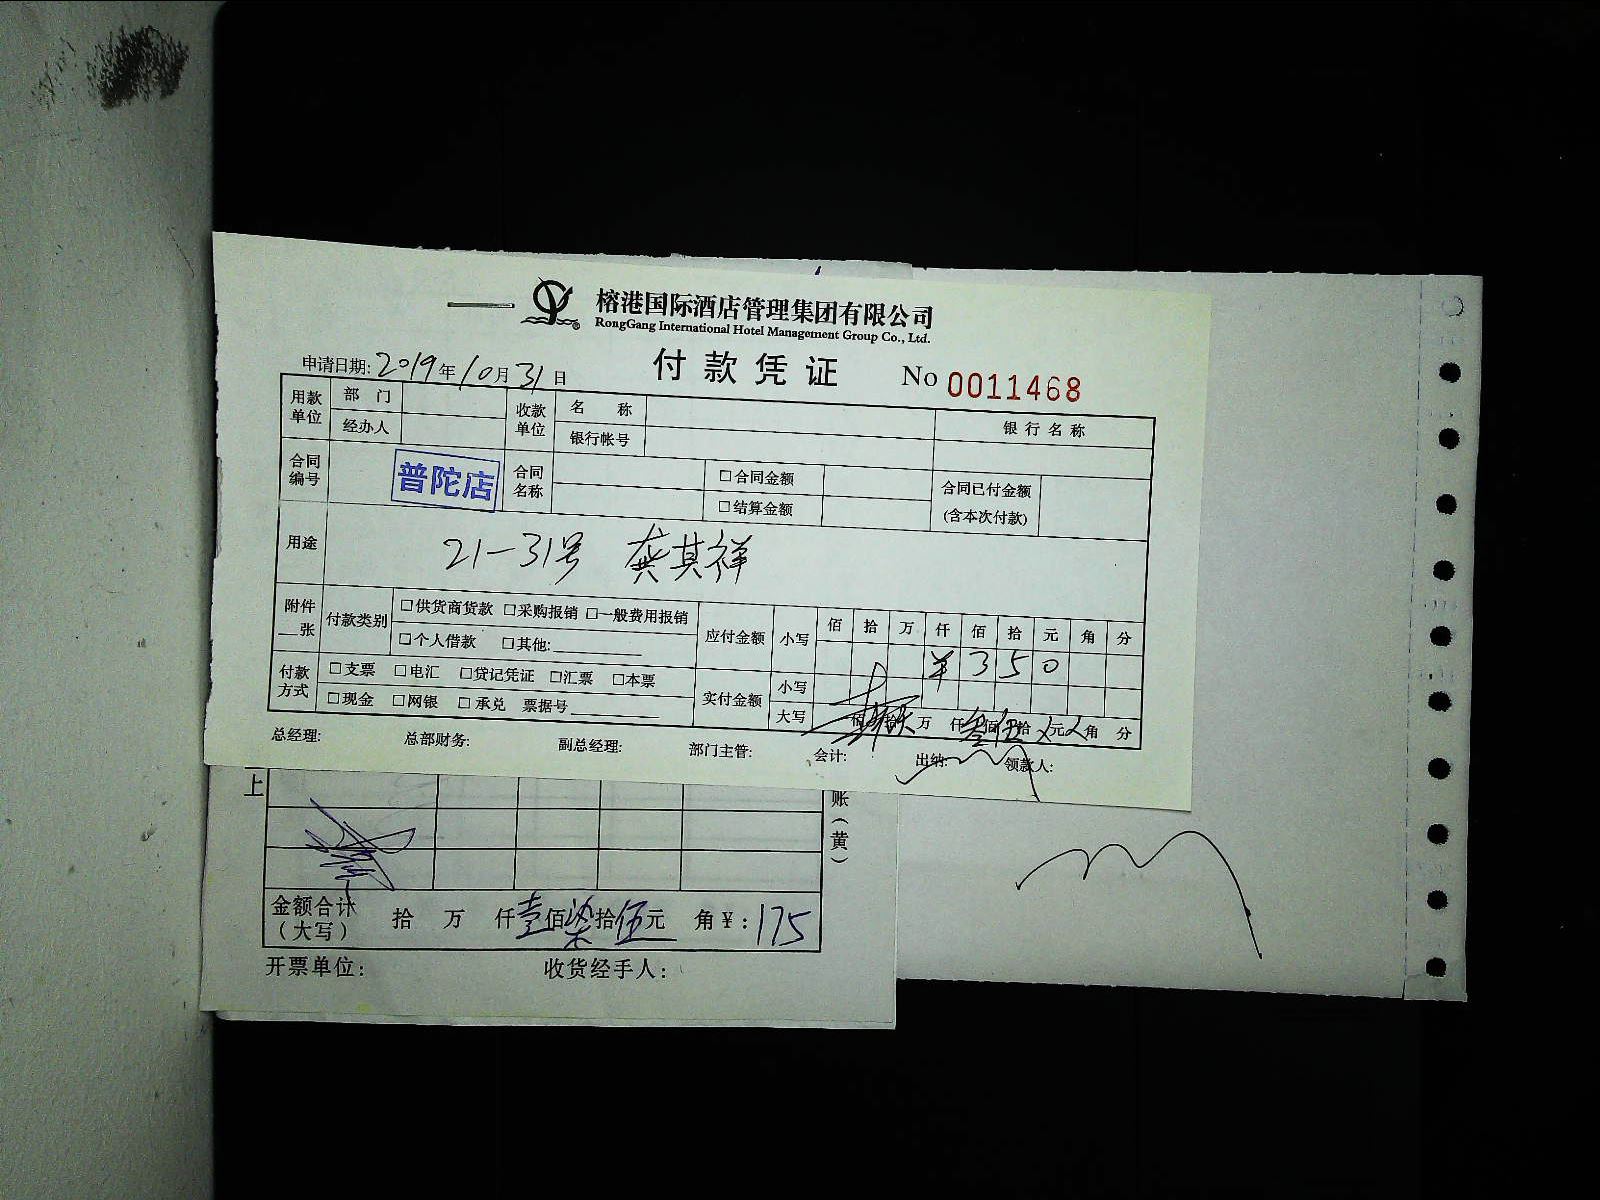 榕港国际酒店管理集团有限公司
RongGang International Hotel Management Group Co., Ltd.
付款凭证
No 0011468
申请日期: 2019年10月31日
用款单位 部门 收款单位 名称 银行名称
经办人 银行帐号
合同编号 普陀店 合同名称 □合同金额 合同已付金额(含本次付款)
□结算金额
用途 21-31号 龚其祥
附件__张 付款类别 □供货商货款 □采购报销 □一般费用报销 应付金额 小写 佰 拾 万 仟 佰 拾 元 角 分
□个人借款 □其他: ¥ 3 5 0
付款方式 □支票 □电汇 □贷记凭证 □汇票 □本票 实付金额 小写
□现金 □网银 □承兑 票据号 大写 佰 拾 万 仟叁佰伍拾 元 角 分
总经理: 总部财务: 副总经理: 部门主管: 会计: 出纳: 领款人:
上
账(黄)
金额合计(大写) 拾 万 仟壹佰柒拾伍元 角 ¥: 175
开票单位: 收货经手人: